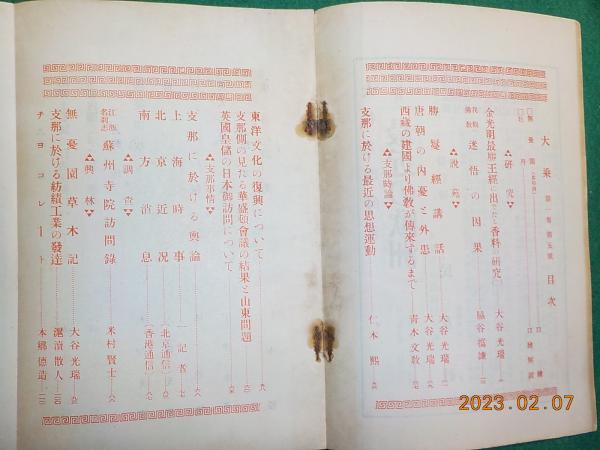 大乗 第一巻第五號 目次
口繪
口繪解説
研究
金光明最勝王經に出でたる香料の研究 大谷光瑞
迷悟の因果 脇谷撝謙
說苑
勝鬘經講話 大谷光瑞
唐朝の内憂と外患
西藏の建國より佛敎が傳來するまで 青木文敎
支那時論
支那に於ける最近の思想運動 仁木熙
東洋文化の復興について
支那側の見たる華盛頓會議の結果と山東問題
英國皇儲の日本御訪問について
支那事情
支那に於ける輿論
上海時事 一記者
北京近況 (北京通信)
南方消息 (香港通信)
調查
江浙名刹志 蘇州寺院訪問錄 米村賢士
興林
無憂園草木記 大谷光瑞
支那に於ける紡績工業の發達 滬濱散人
チヨコレート 本鄕德造
2023.02.07